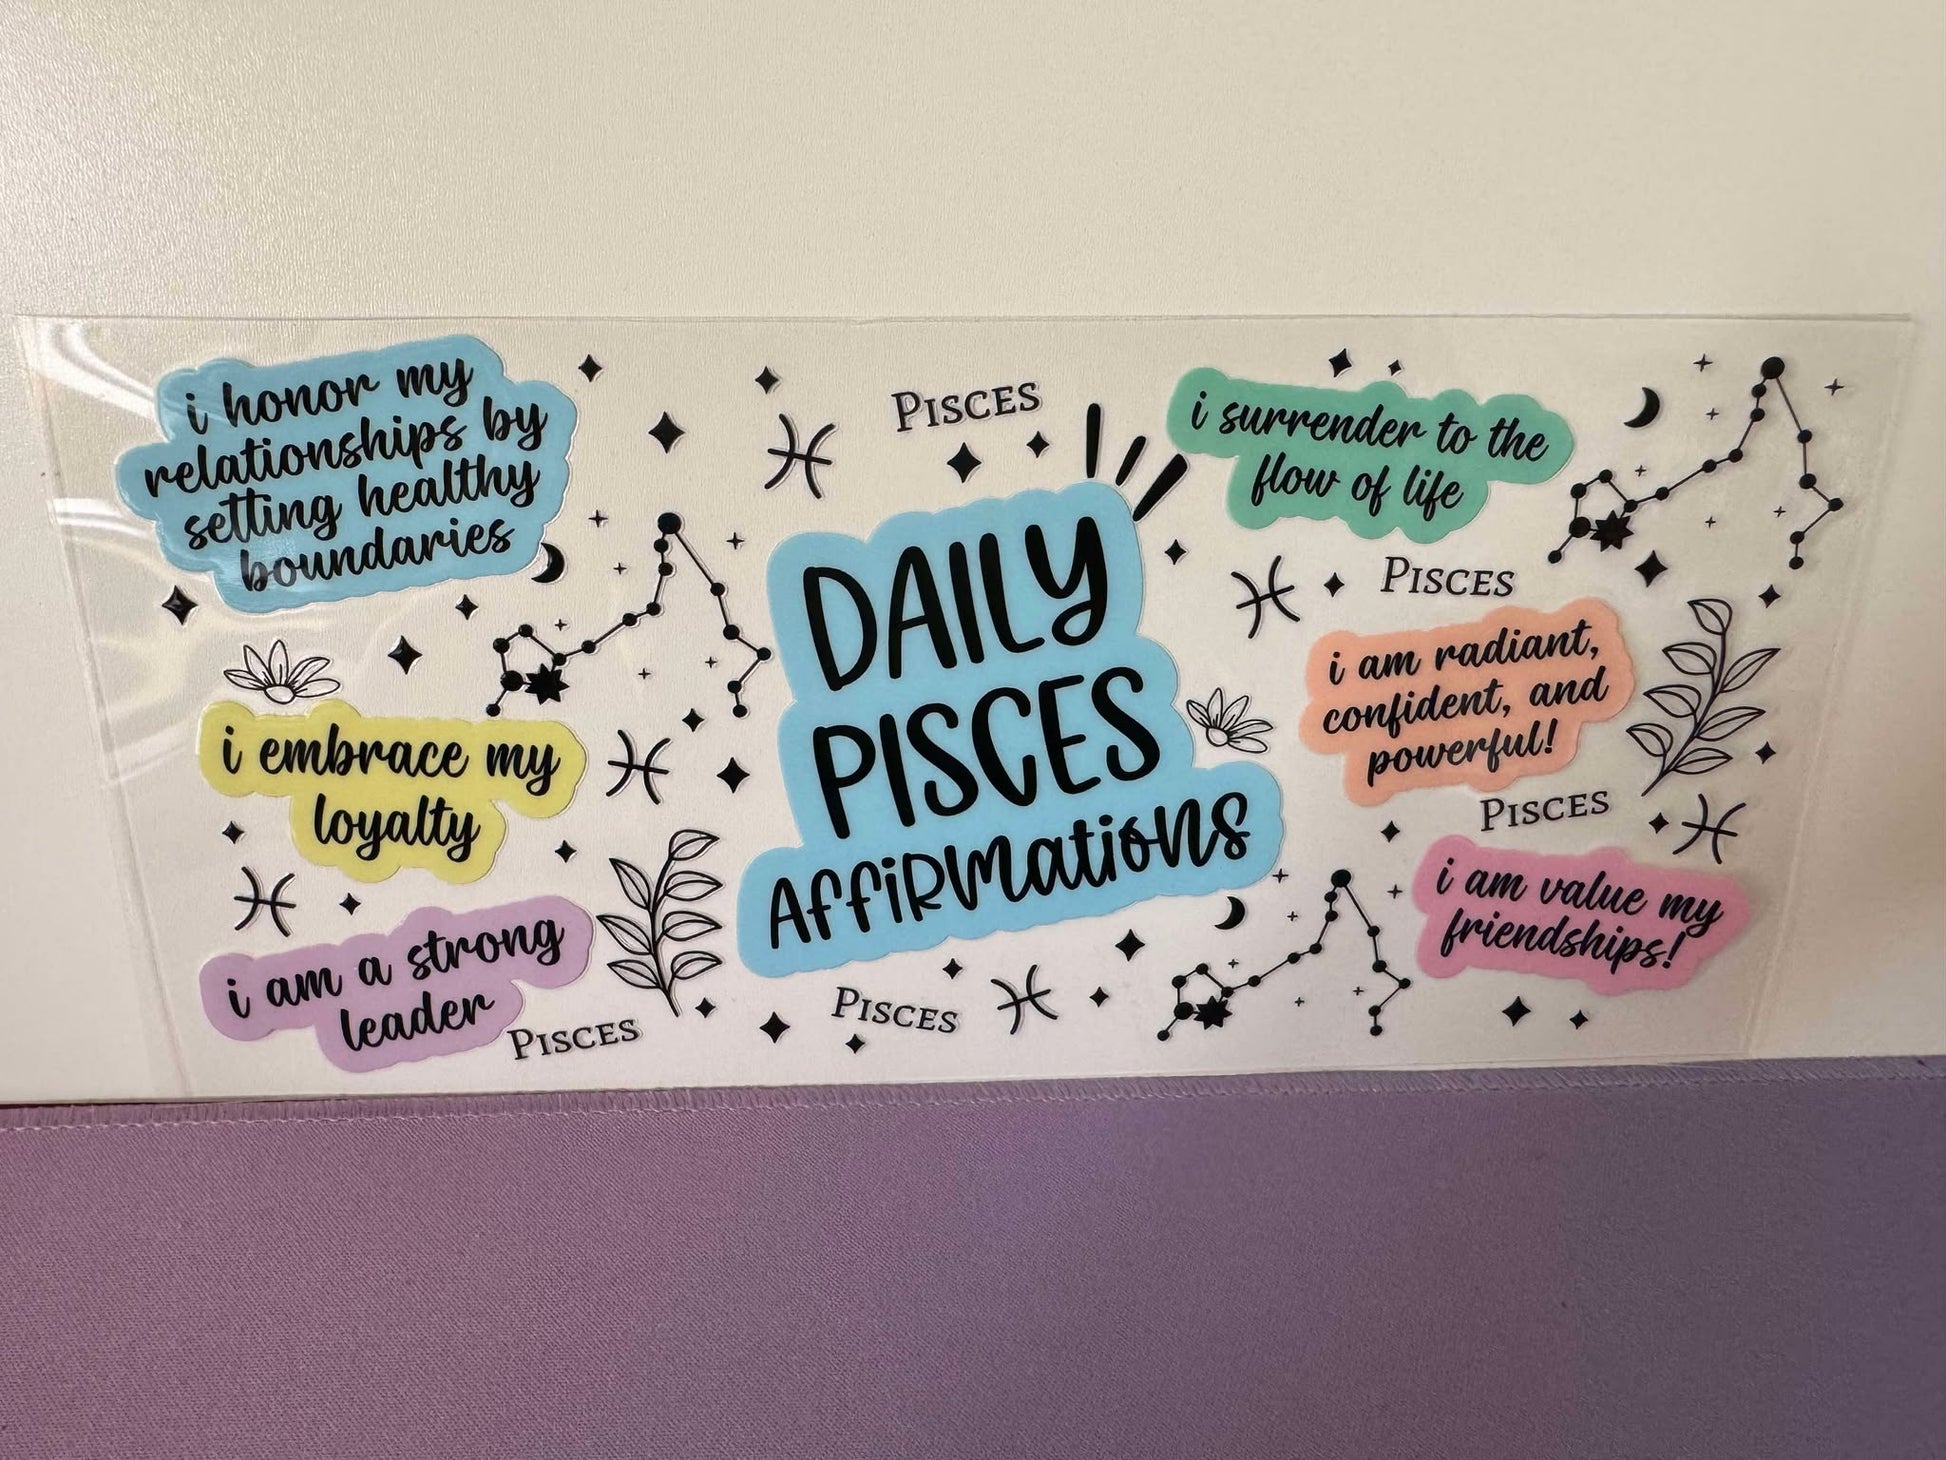 i honor my
relationships by
setting healthy
boundaries
PISCES
i surrender to the
flow of life
DAILY
PISCES
AFFiRMatioNs
PISCES
i embrace my
loyalty
i am radiant,
confident, and
powerful!
PISCES
i am a strong
leader
PISCES
PISCES
i am value my
friendships!